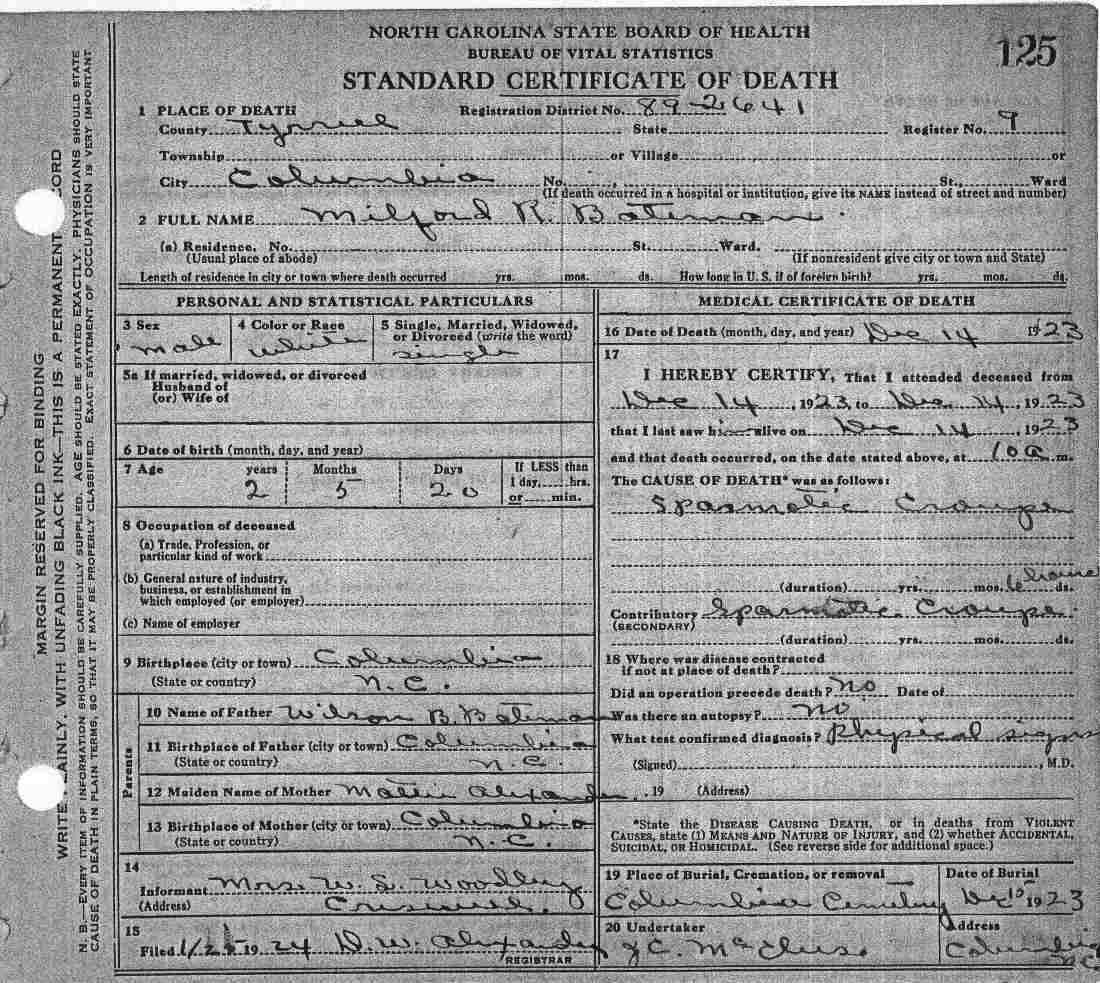 NORTH CAROLINA STATE BOARD OF HEALTH
BUREAU OF VITAL STATISTICS
125
STANDARD CERTIFICATE OF DEATH
1 PLACE OF DEATH Registration District No. 89-2641
County Tyrrell State Register No. 9
Township or Village or
City Columbia No. , St., Ward
(If death occurred in a hospital or institution, give its NAME instead of street and number)
2 FULL NAME Milford R. Bateman
(a) Residence. No. St. Ward.
(Usual place of abode) (If nonresident give city or town and State)
Length of residence in city or town where death occurred yrs. mos. ds. How long in U. S. if of foreign birth? yrs. mos. ds.
PERSONAL AND STATISTICAL PARTICULARS
3 Sex male
4 Color or Race white
5 Single, Married, Widowed,
or Divorced (write the word)
single
5a If married, widowed, or divorced
Husband of
(or) Wife of
6 Date of birth (month, day, and year)
7 Age years Months Days If LESS than
1 day, hrs.
or min.
2 5 20
8 Occupation of deceased
(a) Trade, Profession, or
particular kind of work
(b) General nature of industry,
business, or establishment in
which employed (or employer)
(c) Name of employer
9 Birthplace (city or town) Columbia
(State or country) N.C.
Parents
10 Name of Father Wilson B. Bateman
11 Birthplace of Father (city or town) Columbia
(State or country) N.C.
12 Maiden Name of Mother Mattie Alexander
13 Birthplace of Mother (city or town) Columbia
(State or country) N.C.
14
Informant Mrs. W. S. Woodley
(Address) Creswell.
15
Filed 1/2 1924 D. W. Alexander
REGISTRAR
MEDICAL CERTIFICATE OF DEATH
16 Date of Death (month, day, and year) Dec 14 1923
17
I HEREBY CERTIFY, That I attended deceased from
Dec 14, 1923, to Dec 14, 1923
that I last saw him alive on Dec 14, 1923
and that death occurred, on the date stated above, at 10 a m.
The CAUSE OF DEATH* was as follows:
Spasmatic Croupe
(duration) yrs. mos. 6 hours ds.
Contributory Spasmatic Croupe
(SECONDARY)
(duration) yrs. mos. ds.
18 Where was disease contracted
if not at place of death?
Did an operation precede death? no Date of
Was there an autopsy? no
What test confirmed diagnosis? Physical signs
(Signed) , M.D.
, 19 (Address)
*State the DISEASE CAUSING DEATH, or in deaths from VIOLENT
CAUSES, state (1) MEANS AND NATURE OF INJURY, and (2) whether ACCIDENTAL,
SUICIDAL, OR HOMICIDAL. (See reverse side for additional space.)
19 Place of Burial, Cremation, or removal
Columbia Cemetery
Date of Burial
Dec 15 1923
20 Undertaker
J.C. McClees.
Address
Columbia
N.C.
MARGIN RESERVED FOR BINDING
WRITE PLAINLY, WITH UNFADING BLACK INK—THIS IS A PERMANENT RECORD
N. B.—EVERY ITEM OF INFORMATION SHOULD BE CAREFULLY SUPPLIED. AGE SHOULD BE STATED EXACTLY. PHYSICIANS SHOULD STATE
CAUSE OF DEATH IN PLAIN TERMS, SO THAT IT MAY BE PROPERLY CLASSIFIED. EXACT STATEMENT OF OCCUPATION IS VERY IMPORTANT